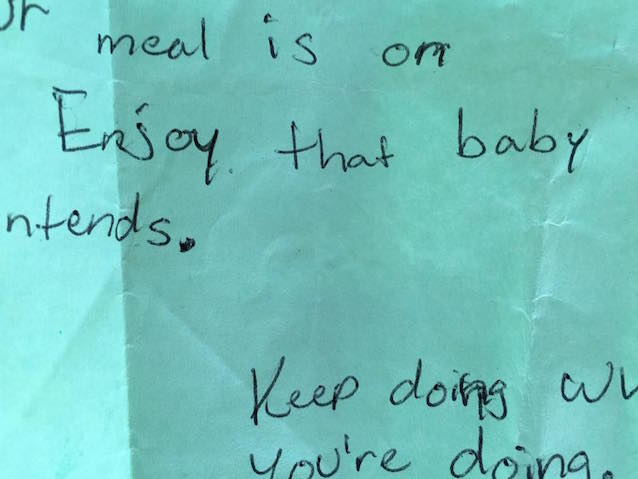 ur meal is on
Enjoy. that baby
ntends.
Keep doing wh
you're doing.